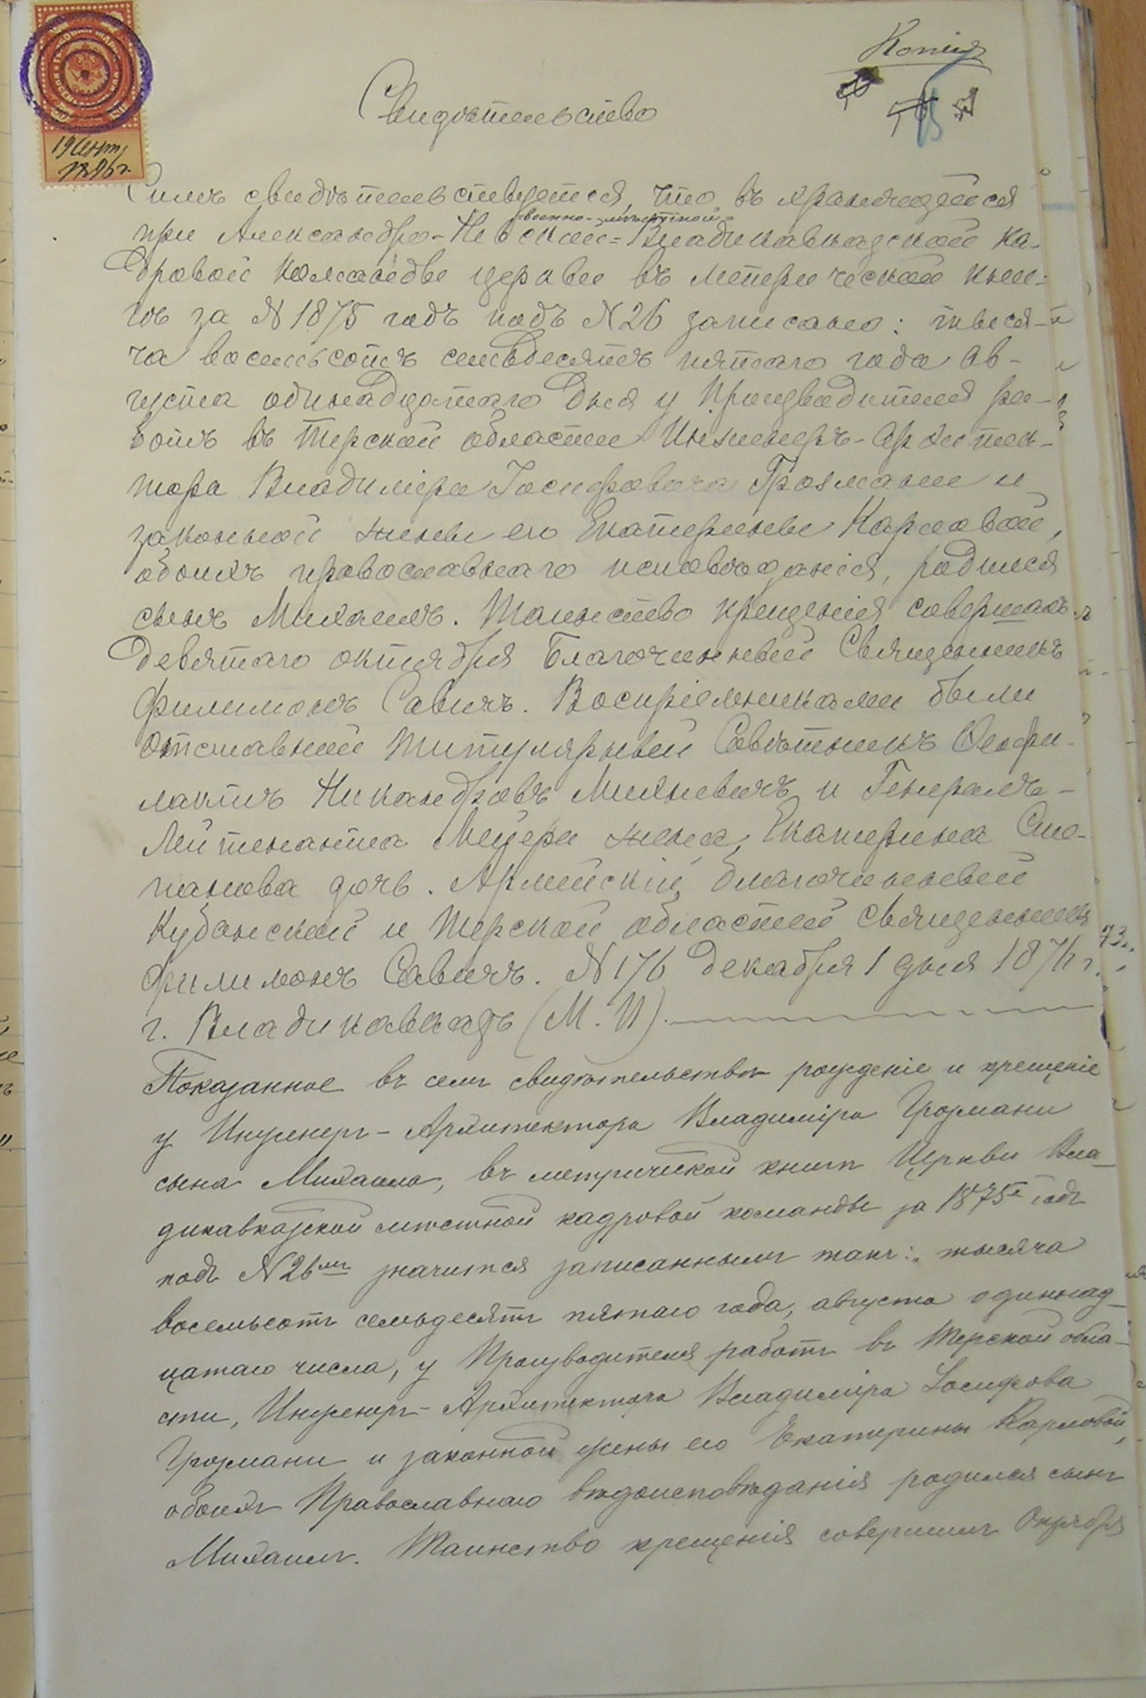 Копія
Свидѣтельство
19 Сент.
1896 г.
Симъ свидѣтельствуется, что въ хранящейся
военно-мѣстной
при Александро-Невской Владикавказской ка-
дровой команды церкви въ метрической кни-
гѣ за № 1875 годъ подъ № 26 записано: тыся-
ча восемьсотъ семьдесятъ пятаго года ав-
густа одинадцатаго дня у Производителя ра-
ботъ въ Терской области Инженеръ-Архитек-
тора Владиміра Іосифовича Грозмани и
законной жены его Екатерины Карловой,
обоихъ православнаго исповѣданія, родился
сынъ Михаилъ. Таинство крещенія совершалъ
девятаго октября Благочинный Священникъ
Филимонъ Савичъ. Воспріемниками были
отставной Титулярный Совѣтникъ Феофи-
лактъ Никандровъ Михневичъ и Генералъ-
Лейтенанта Мейера жена, Екатерина Сте-
панова дочь. Армейскій благочинный
Кубанской и Терской областей священникъ
Филимонъ Савичъ. № 176 декабря 1 дня 1876 г.
г. Владикавказъ (М. П.)
Показанное въ семъ свидѣтельствѣ рожденіе и крещеніе
у Инженеръ-Архитектора Владиміра Грозмани
сына Михаила, въ метрической книгѣ Церкви Вла-
дикавказской мѣстной кадровой команды за 1875й годъ
подъ № 26мъ значится записаннымъ такъ: „тысяча
восемьсотъ семьдесятъ пятаго года, августа одиннад-
цатаго числа, у Производителя работъ въ Терской обла-
сти, Инженеръ-Архитектора Владиміра Іосифова
Грозмани и законной жены его Екатерины Карловой,
обоихъ Православнаго вѣроисповѣданія родился сынъ
Михаилъ. Таинство крещенія совершилъ Октября